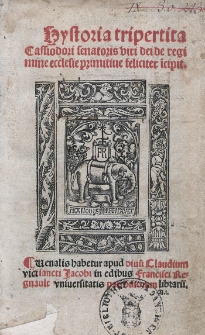 Hystoria tripertita
Cassiodori senatoris viri dei de regi
mine ecclesie primitiue feliciter icipit.
FRANCOYS REGNAVLT
Uenalis habetur apud diui Claudium
vici sancti Jacobi in edibus Francisci Re
gnault vniuersitatis librarii.